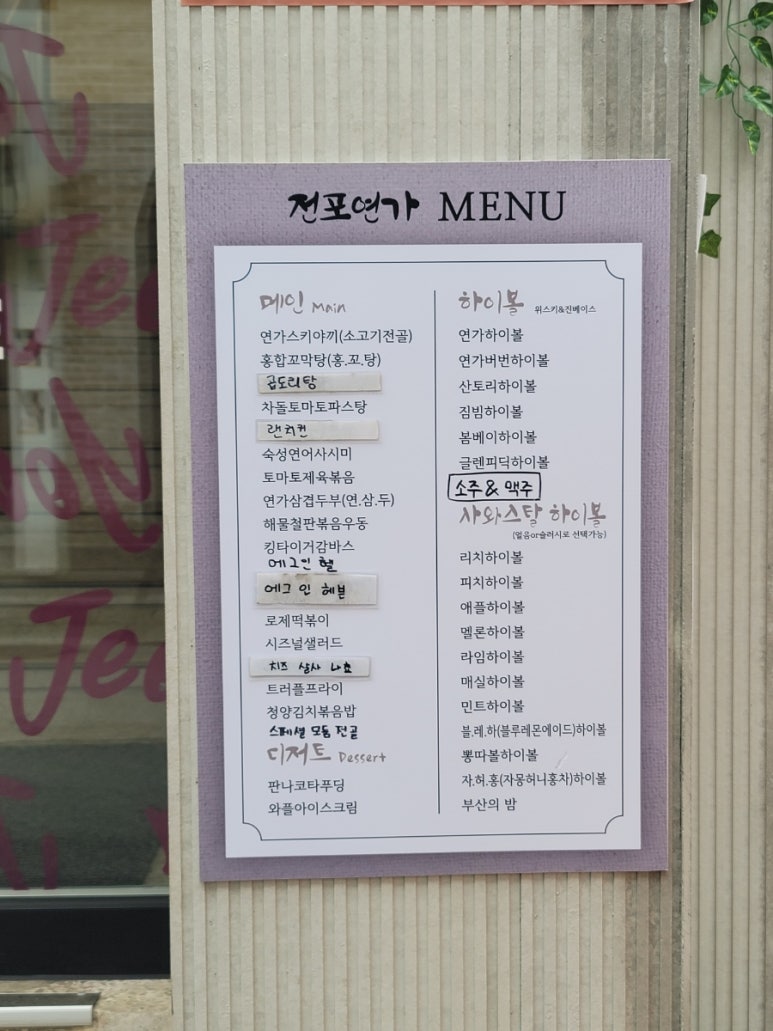 전포연가 MENU
메인 Main
연가스키야끼(소고기전골)
홍합꼬막탕(홍.꼬.탕)
곱도리탕
차돌토마토파스탕
랜치킨
숙성연어사시미
토마토제육볶음
연가삼겹두부(연.삼.두)
해물철판볶음우동
킹타이거감바스
에그인 헬
에그 인 헤븐
로제떡볶이
시즈널샐러드
치즈 살사 나쵸
트러플프라이
청양김치볶음밥
스페셜 모듬 전골
디저트 Dessert
판나코타푸딩
와플아이스크림
하이볼 위스키&진베이스
연가하이볼
연가버번하이볼
산토리하이볼
짐빔하이볼
봄베이하이볼
글렌피딕하이볼
소주 & 맥주
사와스탈 하이볼
(얼음or슬러시로 선택가능)
리치하이볼
피치하이볼
애플하이볼
멜론하이볼
라임하이볼
매실하이볼
민트하이볼
블.레.하(블루레몬에이드)하이볼
뽕따볼하이볼
자.허.홍(자몽허니홍차)하이볼
부산의 밤